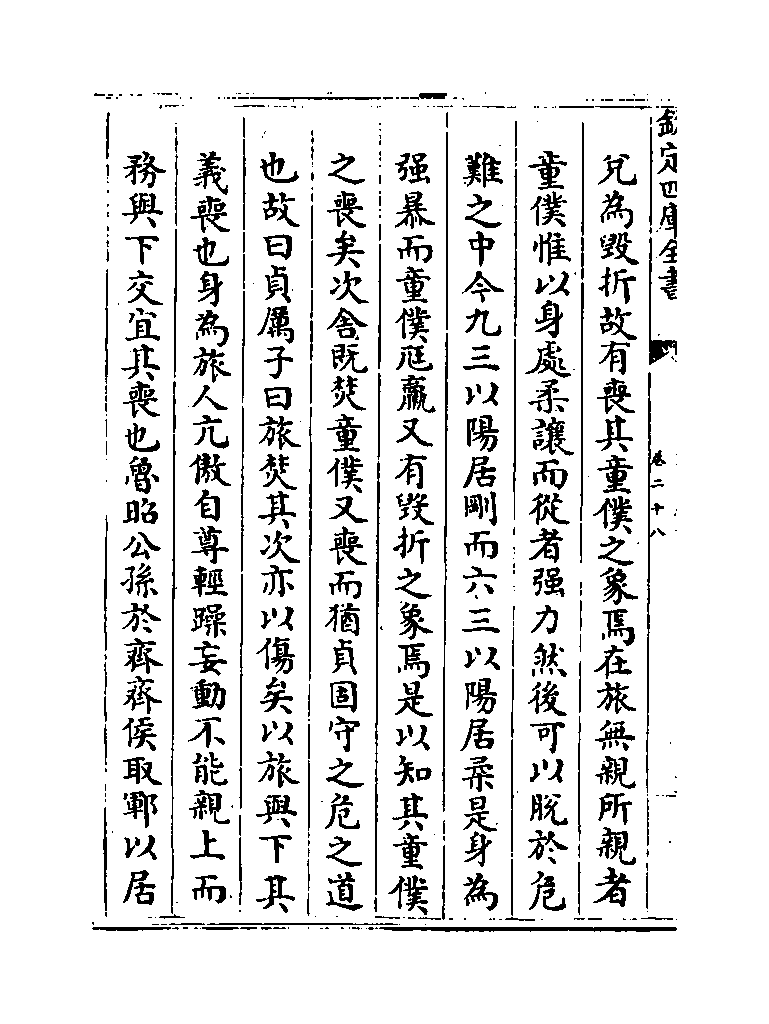 欽定四庫全書
卷二十八
兑為毀折故有喪其童僕之象焉在旅無親所親者
童僕惟以身處柔讓而從者强力然後可以脫於危
難之中今九三以陽居剛而六三以陽居柔是身為
强暴而童僕尫羸又有毀折之象焉是以知其童僕
之喪矣次舍既焚童僕又喪而猶貞固守之危之道
也故曰貞厲子曰旅焚其次亦以傷矣以旅與下其
義喪也身為旅人亢傲自尊輕躁妄動不能親上而
務與下交宜其喪也魯昭公孫於齊齊侯取鄆以居